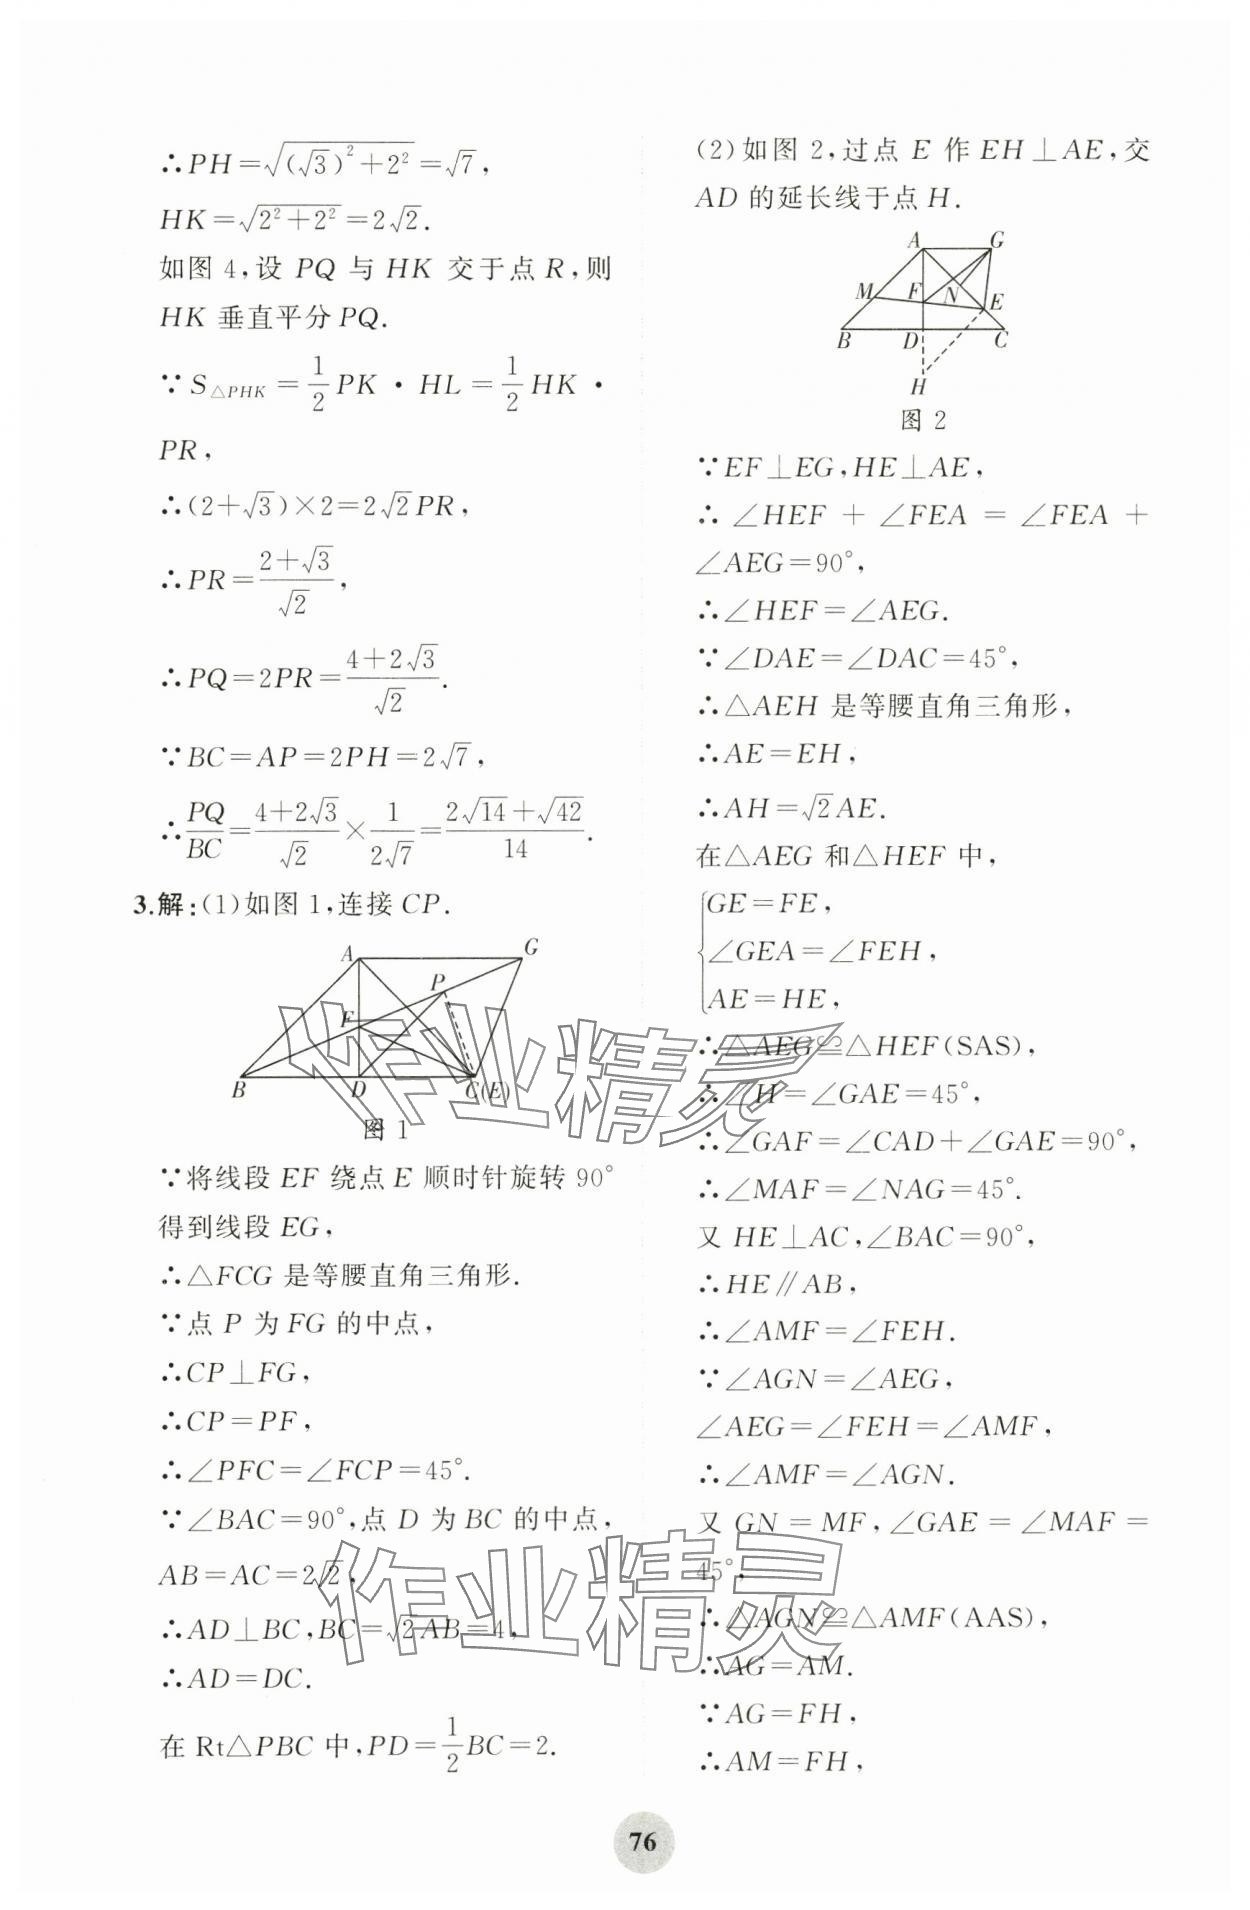 ∴PH=√((√3)²+2²)=√7,
HK=√(2²+2²)=2√2.
如图 4,设 PQ 与 HK 交于点 R,则
HK 垂直平分 PQ.
∵S△PHK=1/2 PK·HL=1/2 HK·
PR,
∴(2+√3)×2=2√2PR,
∴PR=(2+√3)/√2,
∴PQ=2PR=(4+2√3)/√2.
∵BC=AP=2PH=2√7,
∴PQ/BC=(4+2√3)/√2×1/(2√7)=(2√14+√42)/14.
3.解:(1)如图 1,连接 CP.
A G P F B D C(E)
图 1
∵将线段 EF 绕点 E 顺时针旋转 90°
得到线段 EG,
∴△FCG 是等腰直角三角形.
∵点 P 为 FG 的中点,
∴CP⊥FG,
∴CP=PF,
∴∠PFC=∠FCP=45°.
∵∠BAC=90°,点 D 为 BC 的中点,
AB=AC=2√2,
∴AD⊥BC,BC=√2AB=4,
∴AD=DC.
在 Rt△PBC 中,PD=1/2 BC=2.
(2)如图 2,过点 E 作 EH⊥AE,交
AD 的延长线于点 H.
A G M F N E B D C H
图 2
∵EF⊥EG,HE⊥AE,
∴∠HEF+∠FEA=∠FEA+
∠AEG=90°,
∴∠HEF=∠AEG.
∵∠DAE=∠DAC=45°,
∴△AEH 是等腰直角三角形,
∴AE=EH,
∴AH=√2AE.
在△AEG 和△HEF 中,
{GE=FE,
∠GEA=∠FEH,
AE=HE,
∴△AEG≌△HEF(SAS),
∴∠H=∠GAE=45°,
∴∠GAF=∠CAD+∠GAE=90°,
∴∠MAF=∠NAG=45°.
又 HE⊥AC,∠BAC=90°,
∴HE∥AB,
∴∠AMF=∠FEH.
∵∠AGN=∠AEG,
∠AEG=∠FEH=∠AMF,
∴∠AMF=∠AGN.
又 GN=MF,∠GAE=∠MAF=
45°,
∴△AGN≌△AMF(AAS),
∴AG=AM.
∵AG=FH,
∴AM=FH,
作业精灵
作业精灵
76